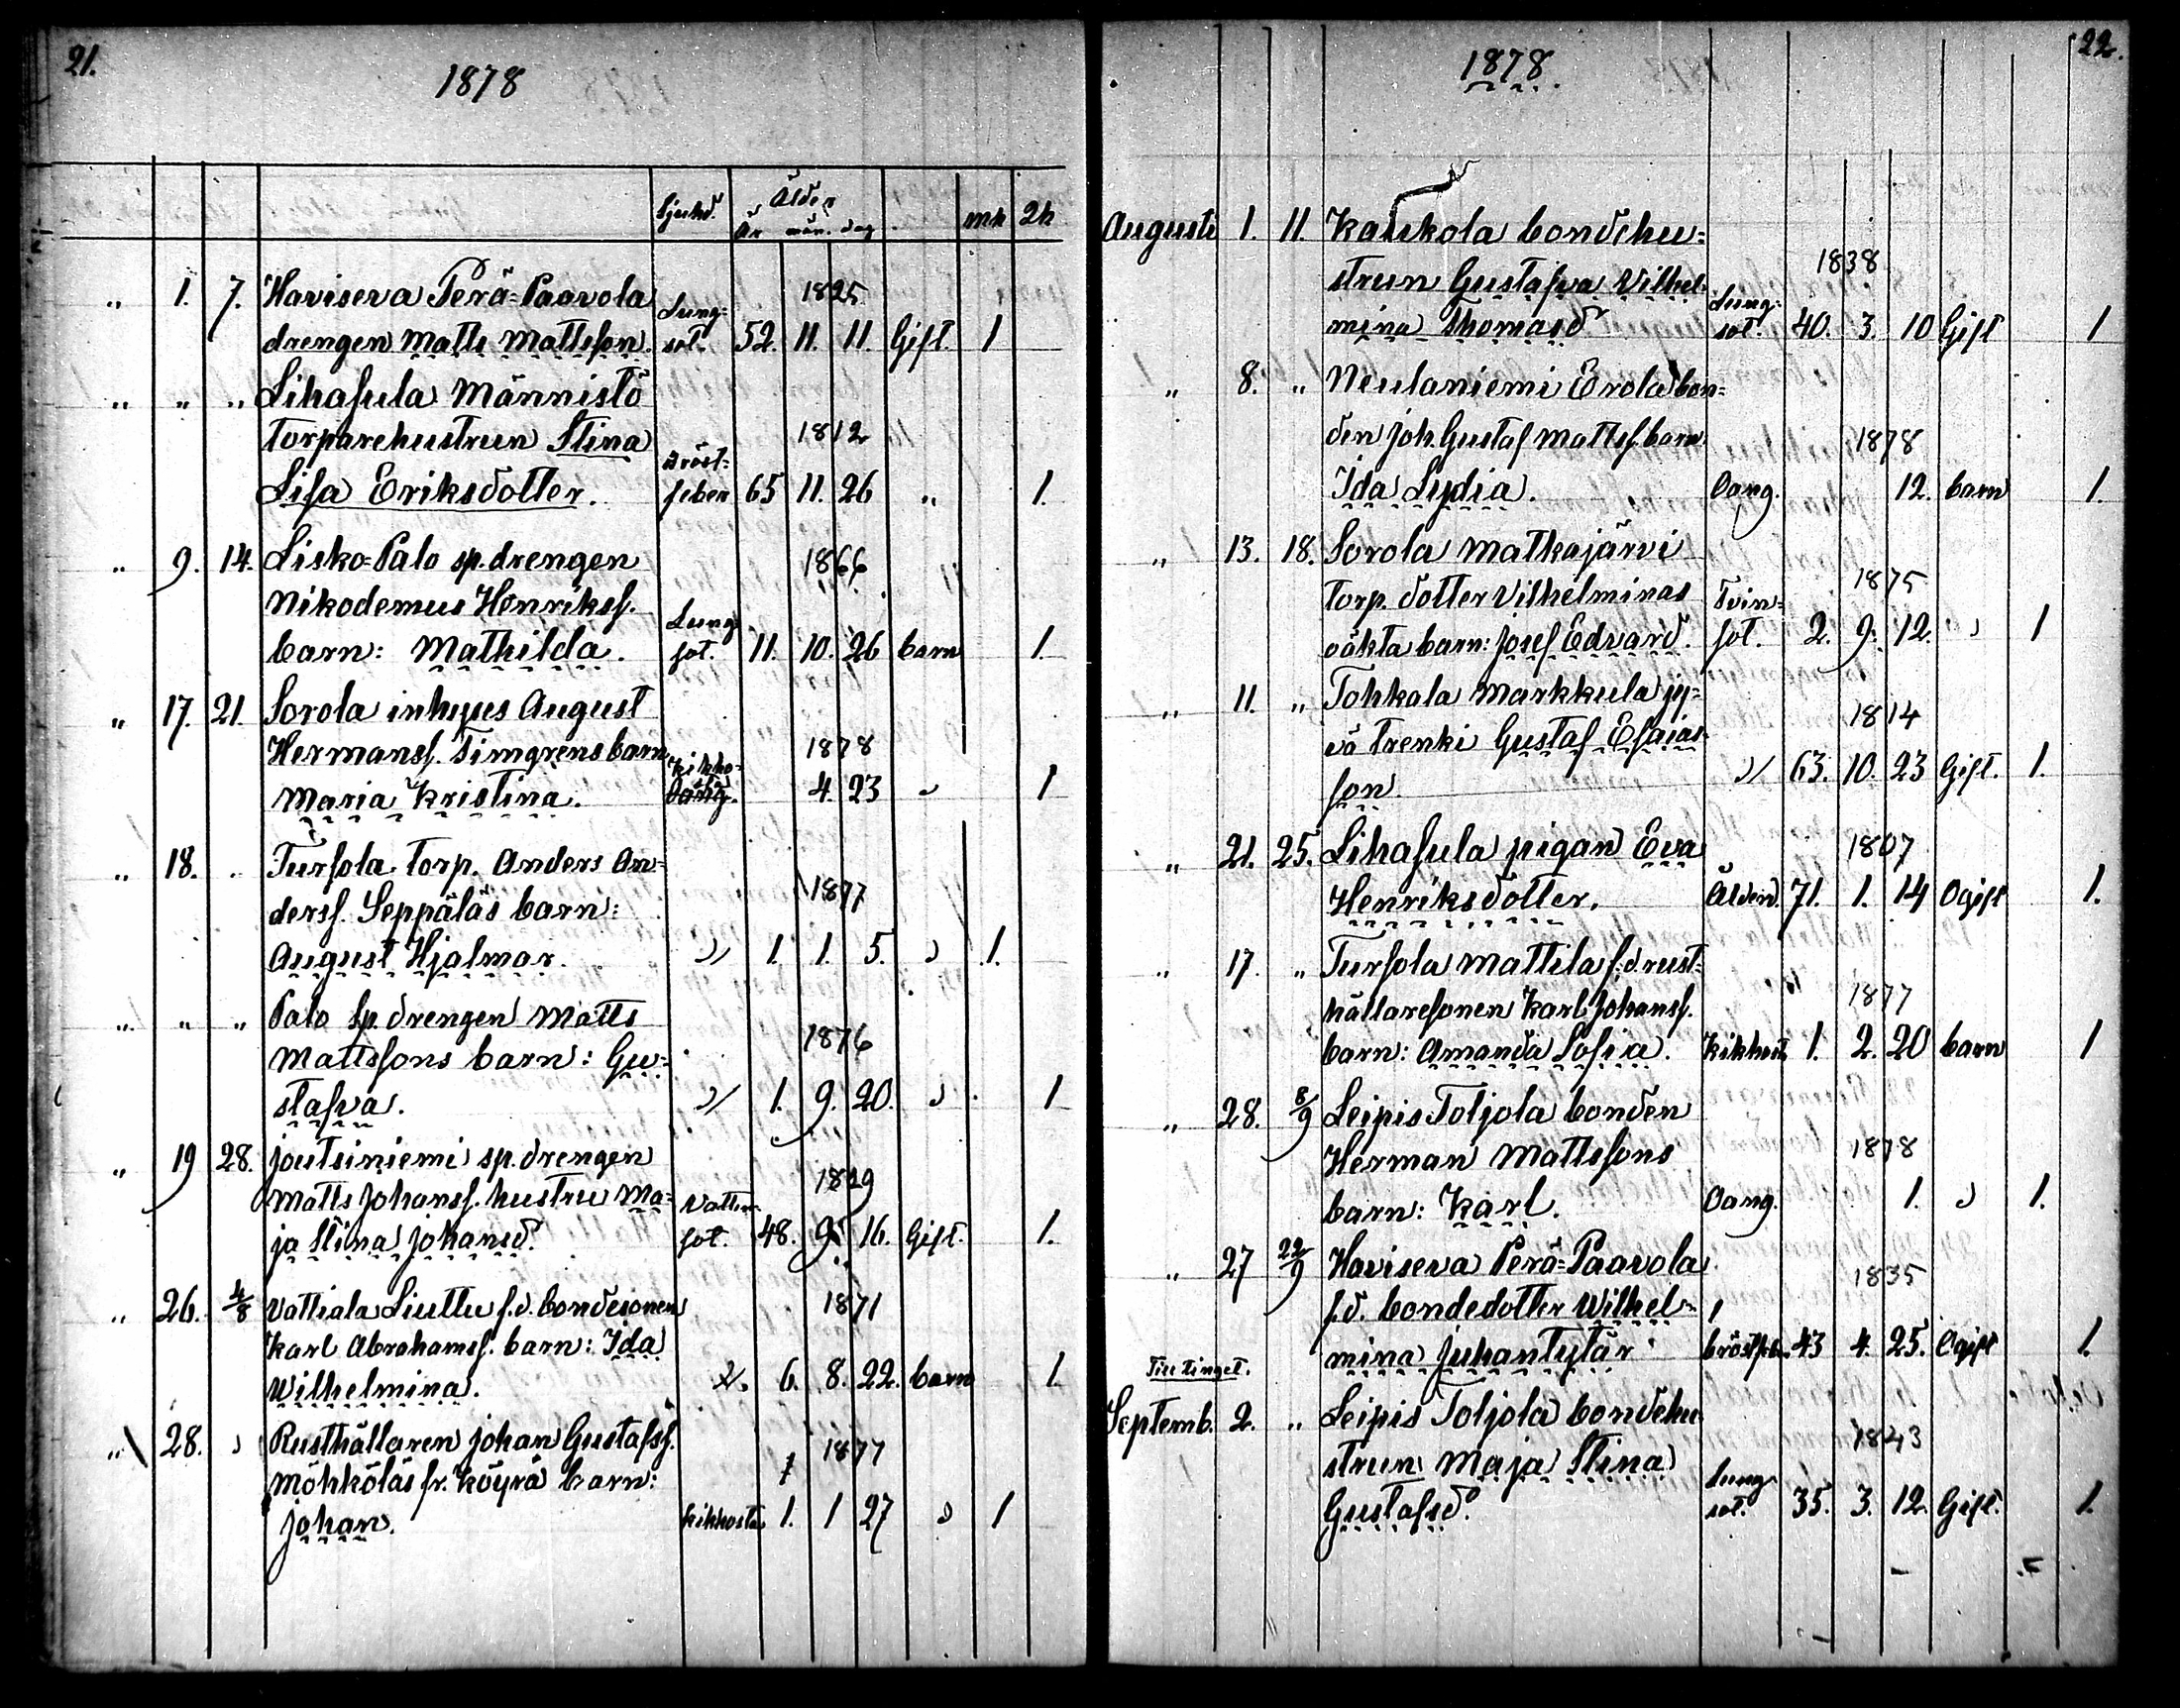 21.
1878
Sjukd. Ålder
År mån. dag mk 2k
„ 1. 7. Haviseva Perä=Paavola 1825
drengen Matts Mattsson. Lung=sot. 52. 11. 11. Gift. 1
„ „ „ Lihasula Männistö
torparehustrun Stina 1812
Lisa Eriksdotter. Bröst=feber 65 11. 26 „ 1.
„ 9. 14. Lisko=Palo sp. drengen 1866
Nikodemus Henrikss.
barn: Mathilda. Lung sot. 11. 10. 26 barn 1.
„ 17. 21. Sorola inhyses August
Hermanss. Timgrens barn 1878
Maria Kristina. 4. 23 „ 1
„ 18. „ Tursola torp. Anders An=
derss. Seppäläs barn: 1877
August Hjalmar. „ 1. 1. 5. „ 1.
„ „ „ Palo sp. drengen Matts
Mattssons barn: Gu= 1876
stafva. „ 1. 9. 20. „ 1
„ 19 28. Joutsiniemi sp. drengen
Matts Johanss. hustru Ma= 1829
ja Stina Johansd. Vatten sot. 48. 9. 16. Gift. 1.
„ 26. 4/8 Vattiala Liuttu f.d. bondesonen 1871
Karl Abrahamss. barn: Ida
Wilhelmina. „ 6. 8. 22. barn 1.
„ 28. „ Rusthållaren Johan Gustafss. 1877
Möhköläs fr. Köyrä barn:
Johan. Kikhosta 1. 1 27 „ 1
22.
1878.
Augusti 1. 11. Kaukola bondehu=
strun Gustafva Vilhel= 1838
mina Thomasd. Lung=sot. 40. 3. 10 Gift 1
„ 8. „ Neulaniemi Erola bon=
den Joh. Gustaf Mattss. barn 1878
Ida Lydia. Oang. 12. barn 1.
„ 13. 18. Sorola Matkajärvi
torp. dotter Vilhelminas 1875
oäkta barn: Josef Edvard. Tvin=sot. 2. 9. 12. „ 1
„ 11. „ Tohkala Markkula jy=
vä trenki Gustaf Esaias 1814
son „ 63. 10. 23 Gift. 1.
„ 21. 25. Lihasula pigan Eva 1807
Henriksdotter. Ålderd. 71. 1. 14 Ogift 1.
„ 17. „ Tursola Mattila f.d. rust=
hållaresonen Karl Johanss. 1877
barn: Amanda Sofia. Kikhost. 1. 2. 20 barn 1
„ 28. 8/9 Leipis Toljola bonden
Herman Mattssons 1878
barn: Karl. Oang. 1. „ 1.
„ 27 22/9 Havisewa Perä=Paavola
f.d. bondedotter Wilhel= 1835
mina Juhantytär bröstfeb. 43 4. 25. Ogift 1.
Till tinget.
Septemb. 2. „ Leipis Toljola bondehu
strun Maja Stina 1843
Gustafsd. Lung sot. 35. 3. 12. Gift. 1.